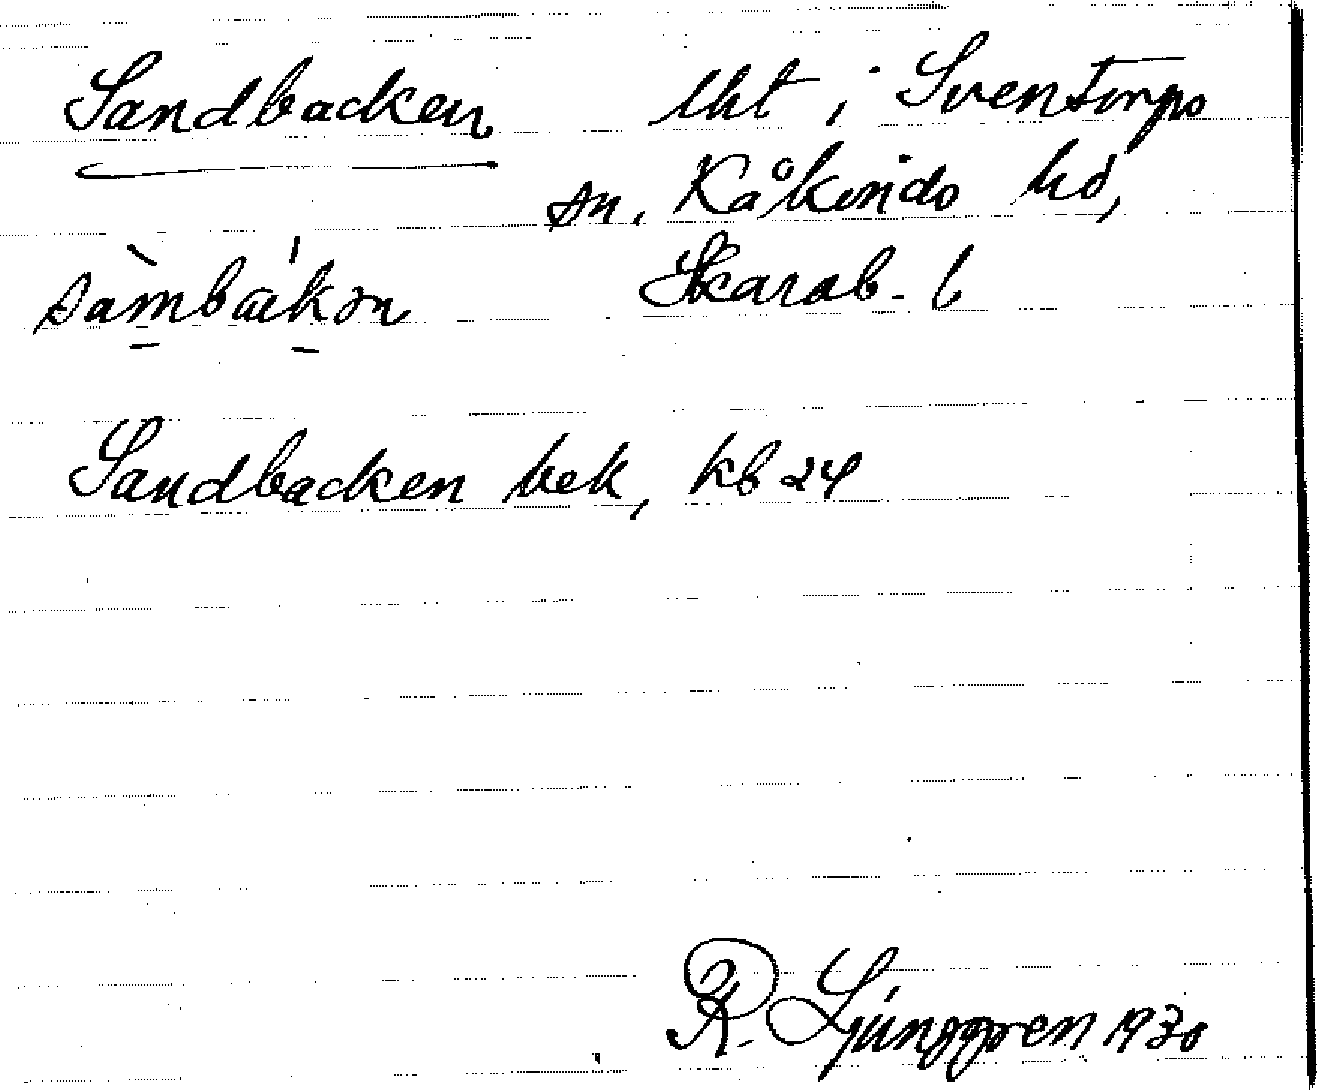 Sandbacken lht i Sventorps
sn. Kåkinds hd,
sàmbákən Skarab. l
Sandbacken bek, kb 24
R. Ljunggren 1930